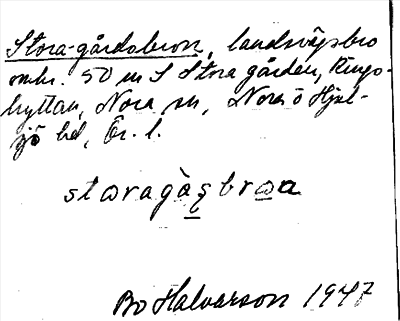 Stora-gårdsbron, landsvägsbro
omkr. 50 m S Stora gården, Rings-
hyttan, Nora sn, Nora o Hjul-
sjö bd, Ör. l.
storagàʂbrωa
Bo Halvarson 1947